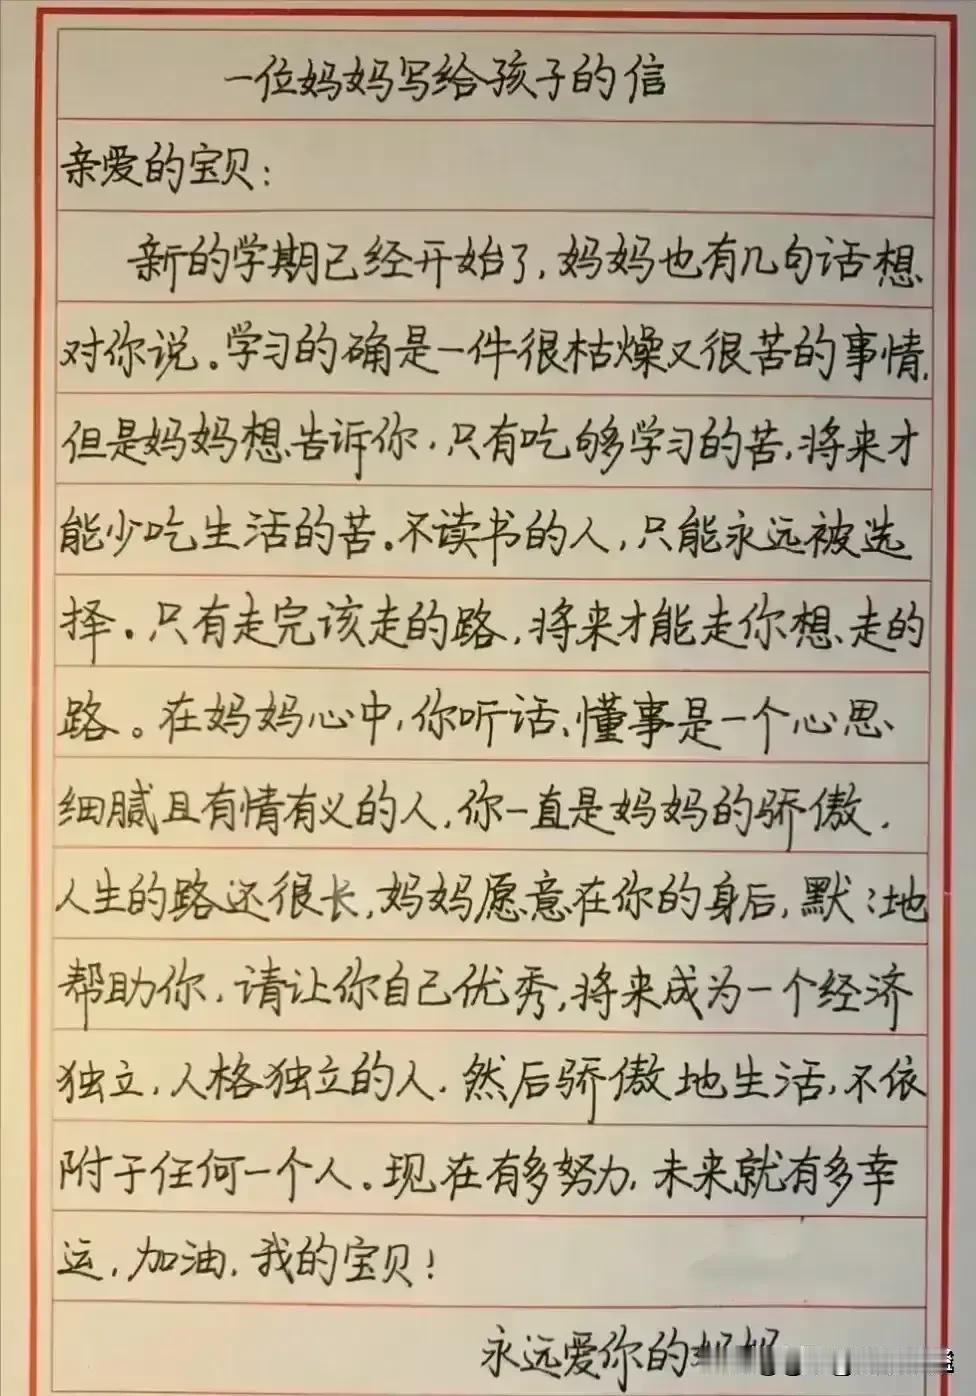 一位妈妈写给孩子的信
亲爱的宝贝：
新的学期已经开始了，妈妈也有几句话想
对你说。学习的确是一件很枯燥又很苦的事情，
但是妈妈想告诉你，只有吃够学习的苦，将来才
能少吃生活的苦。不读书的人，只能永远被选
择。只有走完该走的路，将来才能走你想走的
路。在妈妈心中，你听话、懂事是一个心思
细腻且有情有义的人，你一直是妈妈的骄傲，
人生的路还很长，妈妈愿意在你的身后，默:地
帮助你，请让你自己优秀，将来成为一个经济
独立，人格独立的人，然后骄傲地生活，不依
附于任何一个人。现在有多努力，未来就有多幸
运，加油，我的宝贝！
永远爱你的妈妈